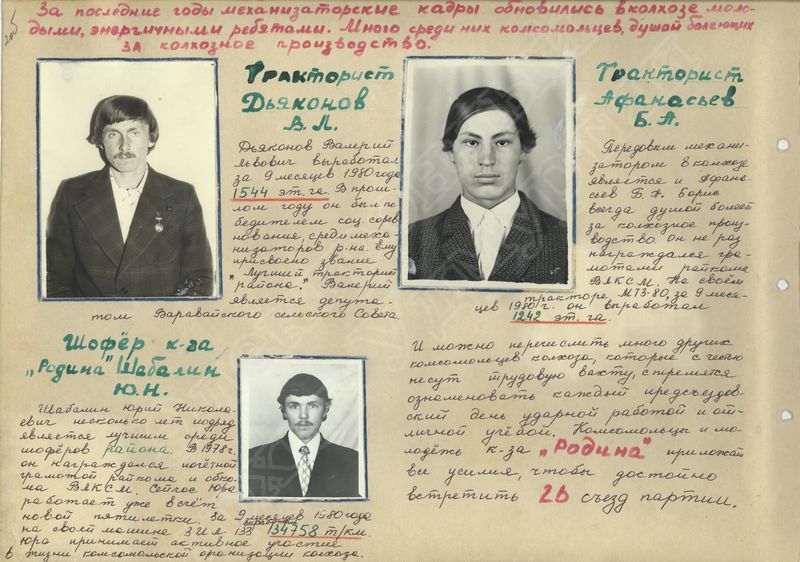 205
За последние годы механизаторские кадры обновились в колхозе моло-
дыми, энергичными ребятами. Много среди них комсомольцев, душой болеющих
за колхозное производство.
Тракторист
Дьяконов
В.Л.
Дьяконов Валерий
Львович выработал
за 9 месяцев 1980 года
1544 эт. га. В прош-
лом году он был по-
бедителем соц. сорев-
нования, среди меха-
низаторов р-на. Ему
присвоено звание
„Лучший тракторист
района." Валерий
является депута-
том Варавайского сельского Совета.
Тракторист
Афанасьев
Б.А.
Передовым механи-
затором в колхозе
является и Афана-
сьев Б.А. Борис
всегда душой болеет
за колхозное произ-
водство он не раз
награждался гра-
мотами райкома
ВЛКСМ. На своём
тракторе МТЗ-80, за 9 меся-
цев 1980 г. он выработал
1242 эт. га.
Шофёр к-за
„Родина" Шабалин
Ю.Н.
Шабалин Юрий Никола-
евич несколько лет подряд
является лучшим среди
шофёров района. В 1978 г.
он награждался почётной
грамотой райкома и обко-
ма ВЛКСМ. Сейчас Юра
работает уже в счёт
новой пятилетки. За 9 месяцев 1980 года
на своей машине ЗИЛ-133 выработал 134758 т/км.
Юра принимает активное участие
в жизни комсомольской организации колхоза.
И можно перечислить много других
комсомольцев колхоза, которые с честью
несут трудовую вахту, стремятся
ознаменовать каждый предсъездов-
ский день ударной работой и от-
личной учёбой. Комсомольцы и мо-
лодёжь к-за „Родина" приложат
все усилия, чтобы достойно
встретить 26 съезд партии.